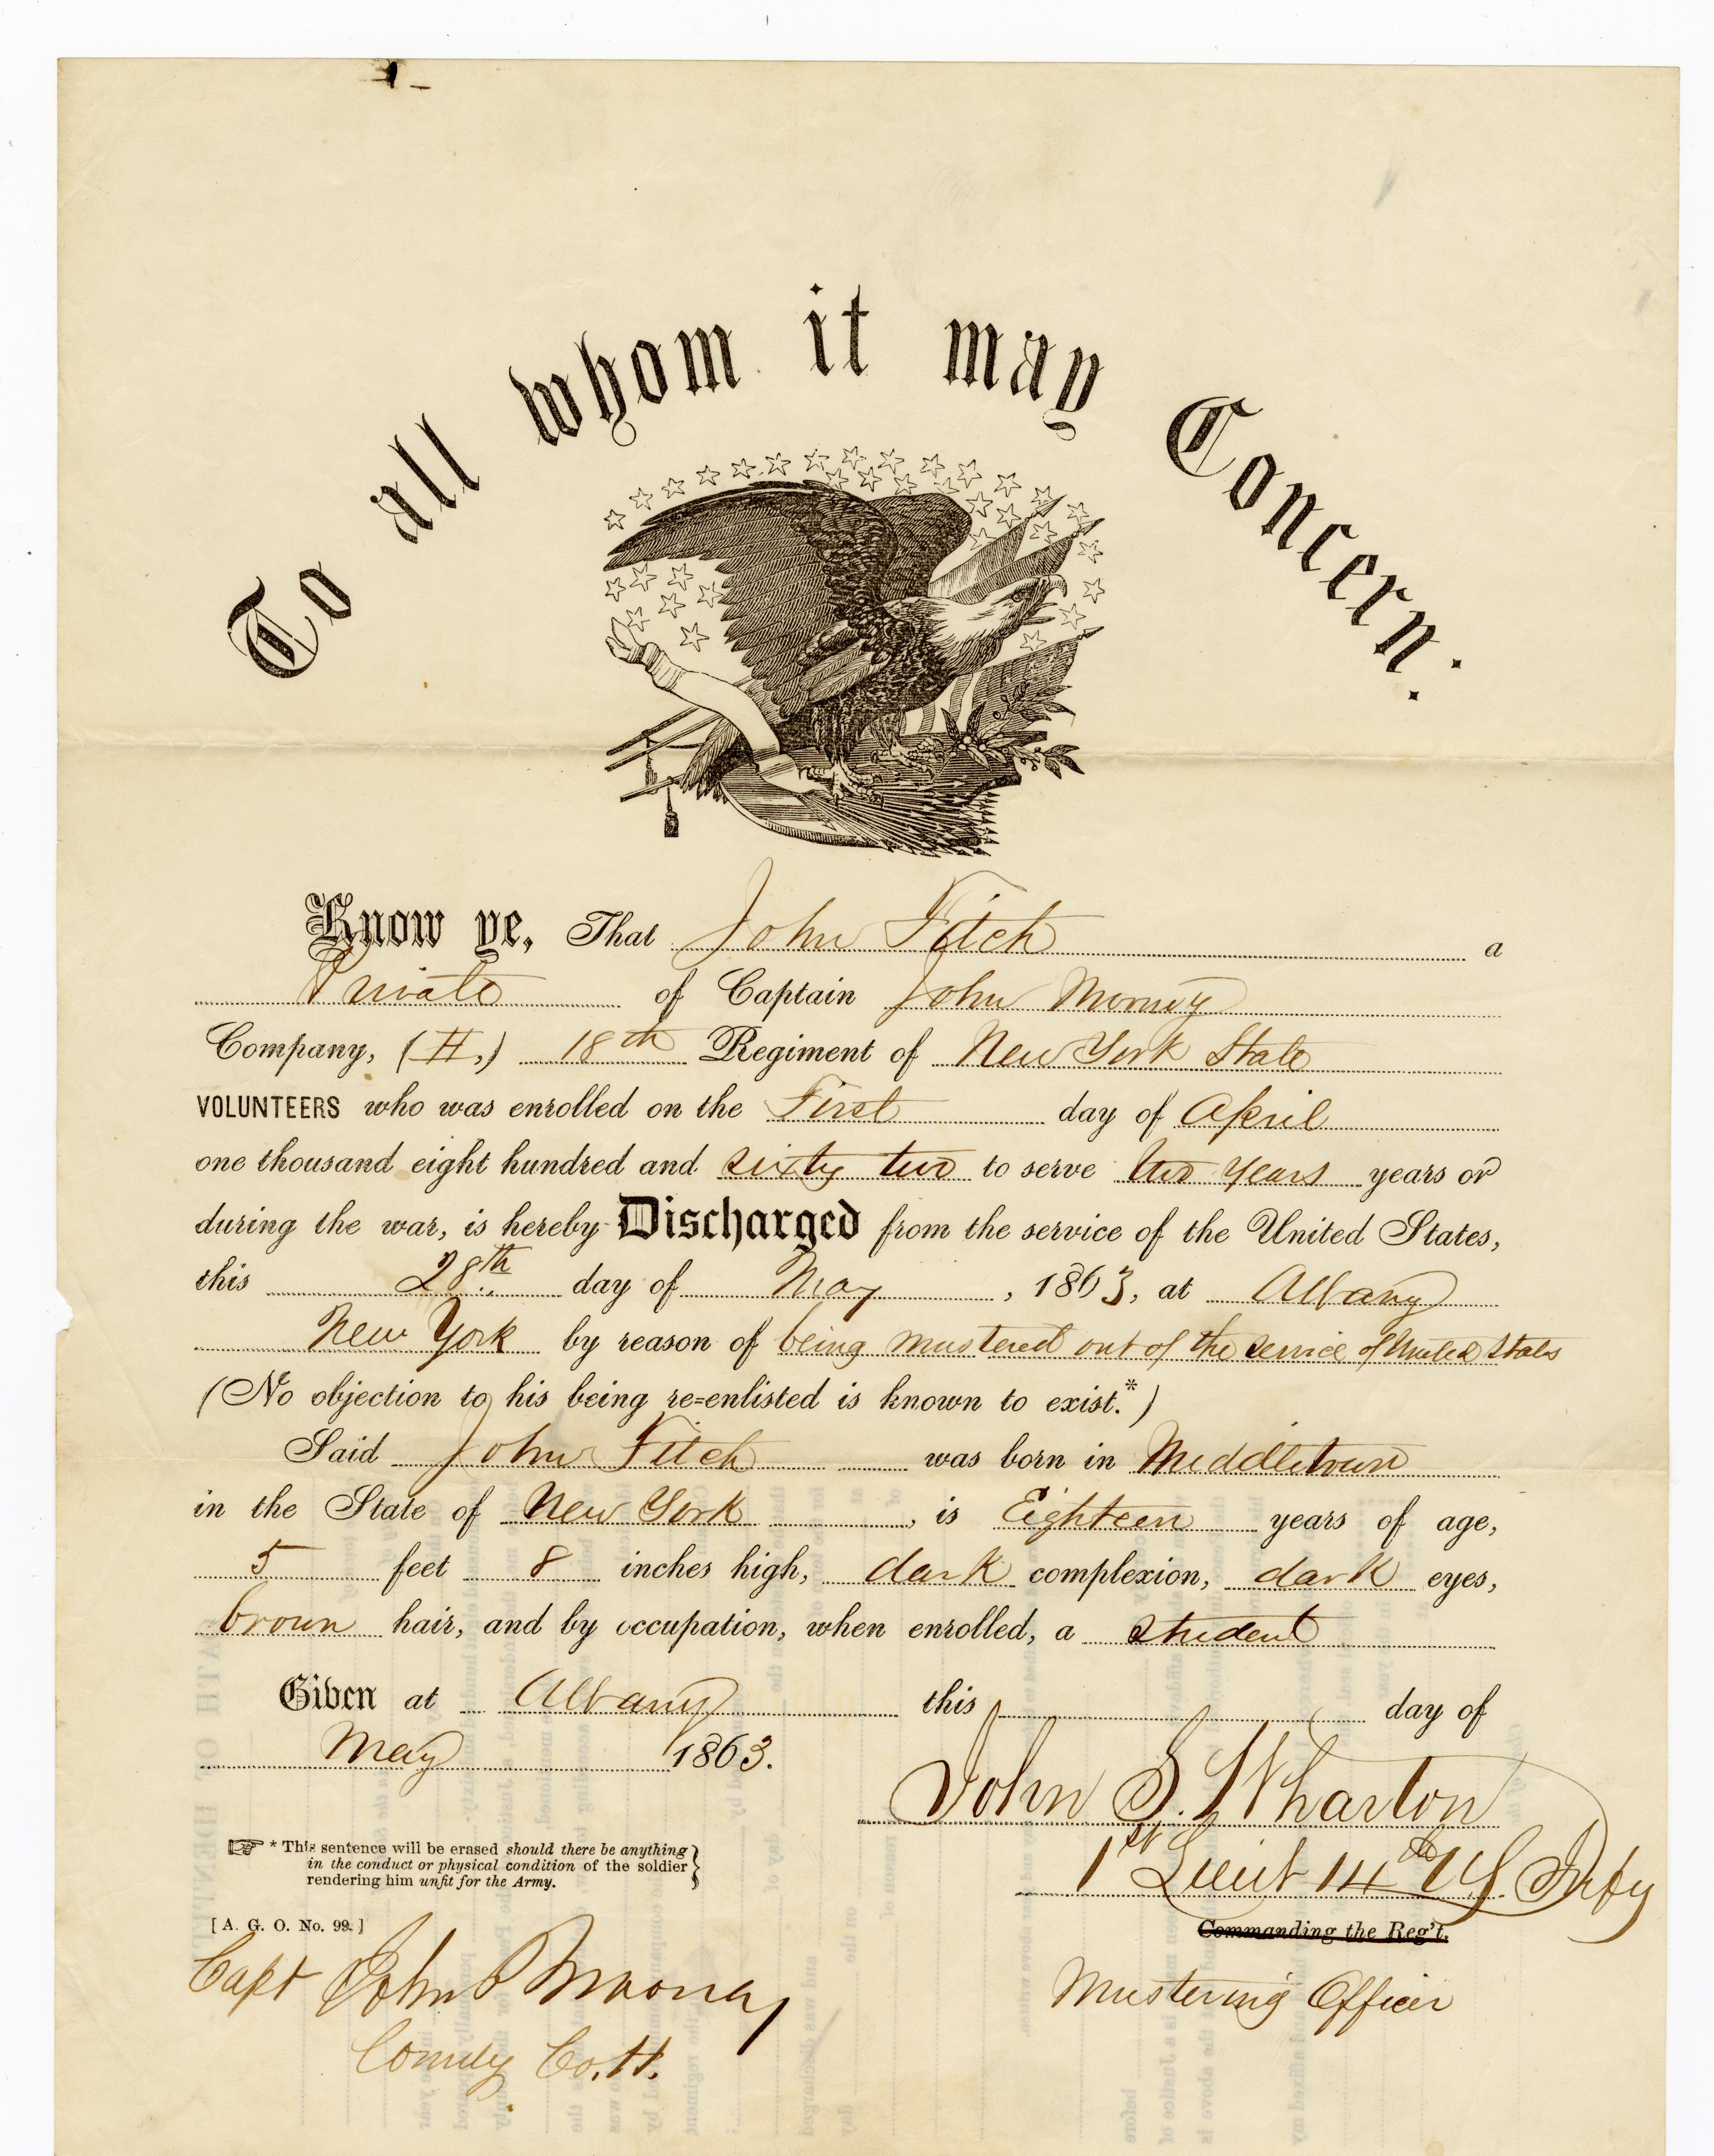 To all whom it may Concern:
Know ye, That John Fitch a
Private of Captain John Mooney
Company, (H,) 18th Regiment of New York State
VOLUNTEERS who was enrolled on the First day of April
one thousand eight hundred and sixty two to serve two years years or
during the war, is hereby Discharged from the service of the United States,
this 28th day of May, 1863, at Albany
New York by reason of being mustered out of the service of United States
(No objection to his being re=enlisted is known to exist.*)
Said John Fitch was born in Middletown
in the State of New York, is Eighteen years of age,
5 feet 8 inches high, dark complexion, dark eyes,
brown hair, and by occupation, when enrolled, a student
Given at Albany this day of
May 1863.
John S. Wharton
1st Lieut 14th US Infty
Commanding the Reg't.
Mustering Officer
* This sentence will be erased should there be anything
in the conduct or physical condition of the soldier
rendering him unfit for the Army.
[A. G. O. No. 99.]
Capt John Mooney
Comdg Co. H.